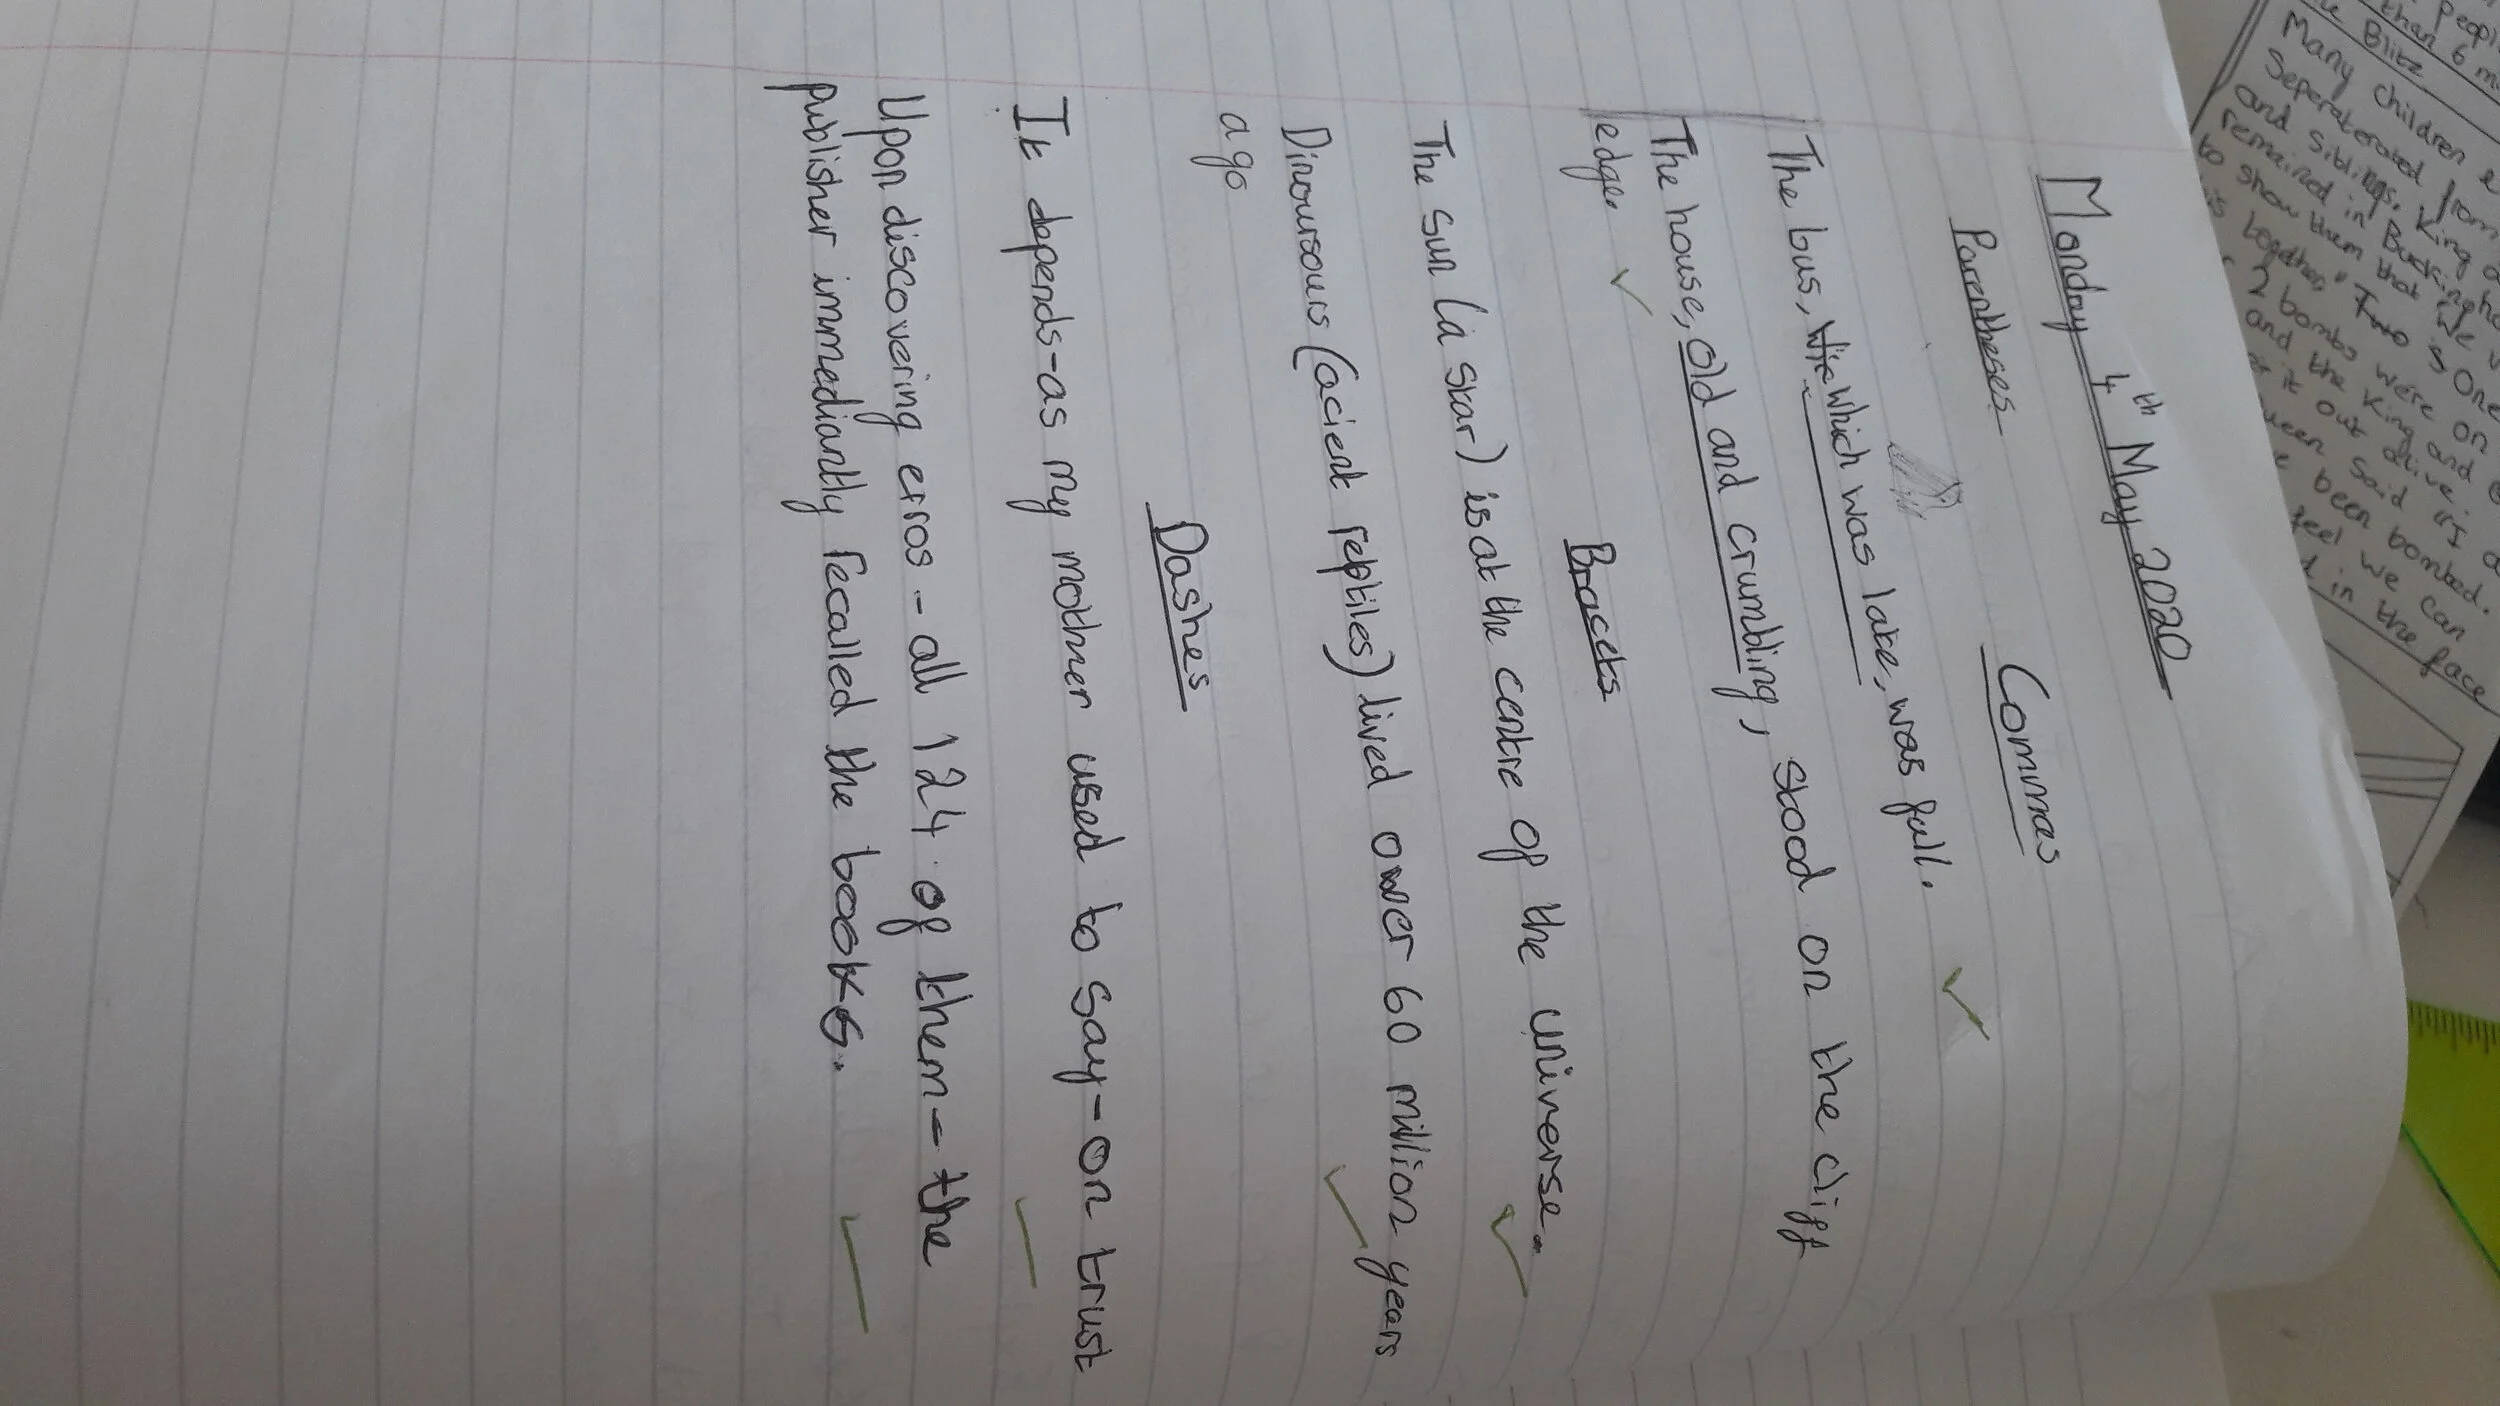 Monday 4th May 2020
Parentheses Commas
The bus, which was late, was full.
The house, old and crumbling, stood on the cliff
edge.
Bracets
The sun (a star) is at the centre of the universe.
Dinoursours (acient reptiles) lived over 60 million years
ago
Dashes
It depends-as my mother used to say-on trust
Upon discovering erros - all 124 of them - the
publisher immediantly recalled the books.
peopl
than 6 m
Blitz
Many children e
Seperaterated from
and siblings. King
remained in Bucking
to show them that we
together." Two
2 bombs were on
and the King and
it out alive it
ueen said it's a
been bombed.
feel we can
in the face